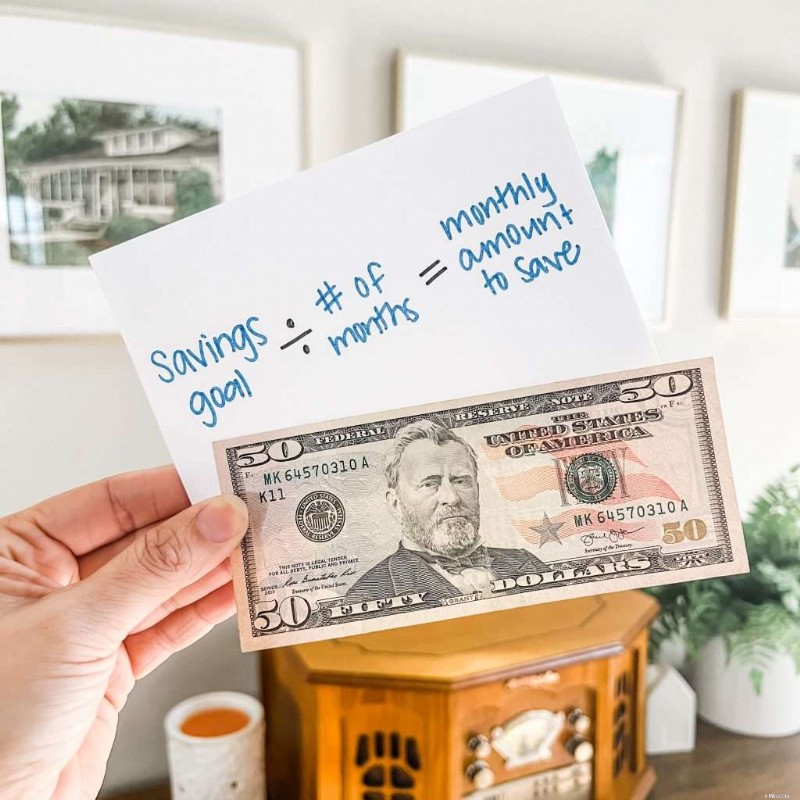 savings
goal
÷
# of
months
=
monthly
amount
to save
50
FEDERAL RESERVE NOTE
50
THE
UNITED STATES
OF AMERICA
MK 64570310 A
K11
MK 64570310 A
THIS NOTE IS LEGAL TENDER
FOR ALL DEBTS, PUBLIC AND PRIVATE
Treasurer of the United States
Secretary of the Treasury
50
50
FIFTY
GRANT
DOLLARS